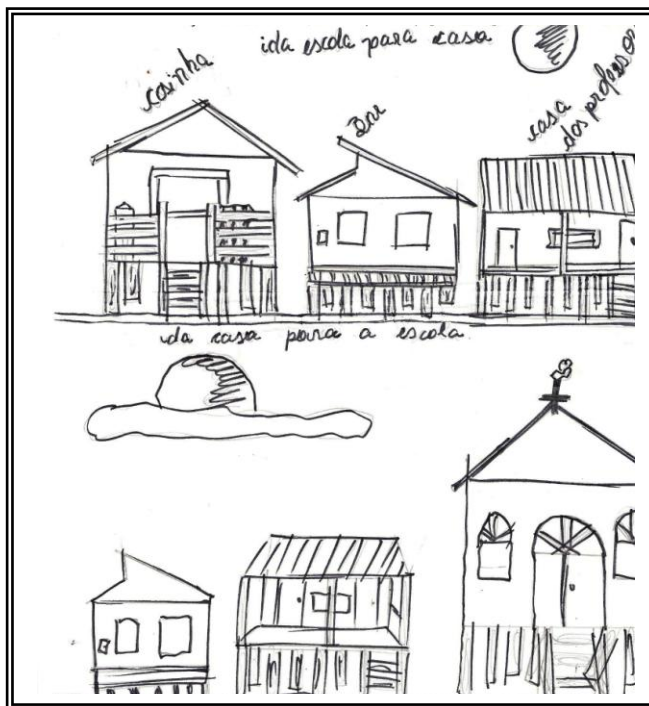 ida escola para casa
cosinha
casa
dos professor
ida casa para a escola